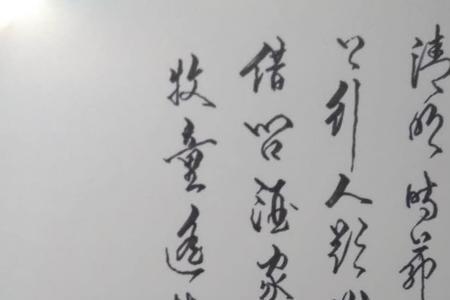 清明時節
上行人欲
借問酒家
牧童遥